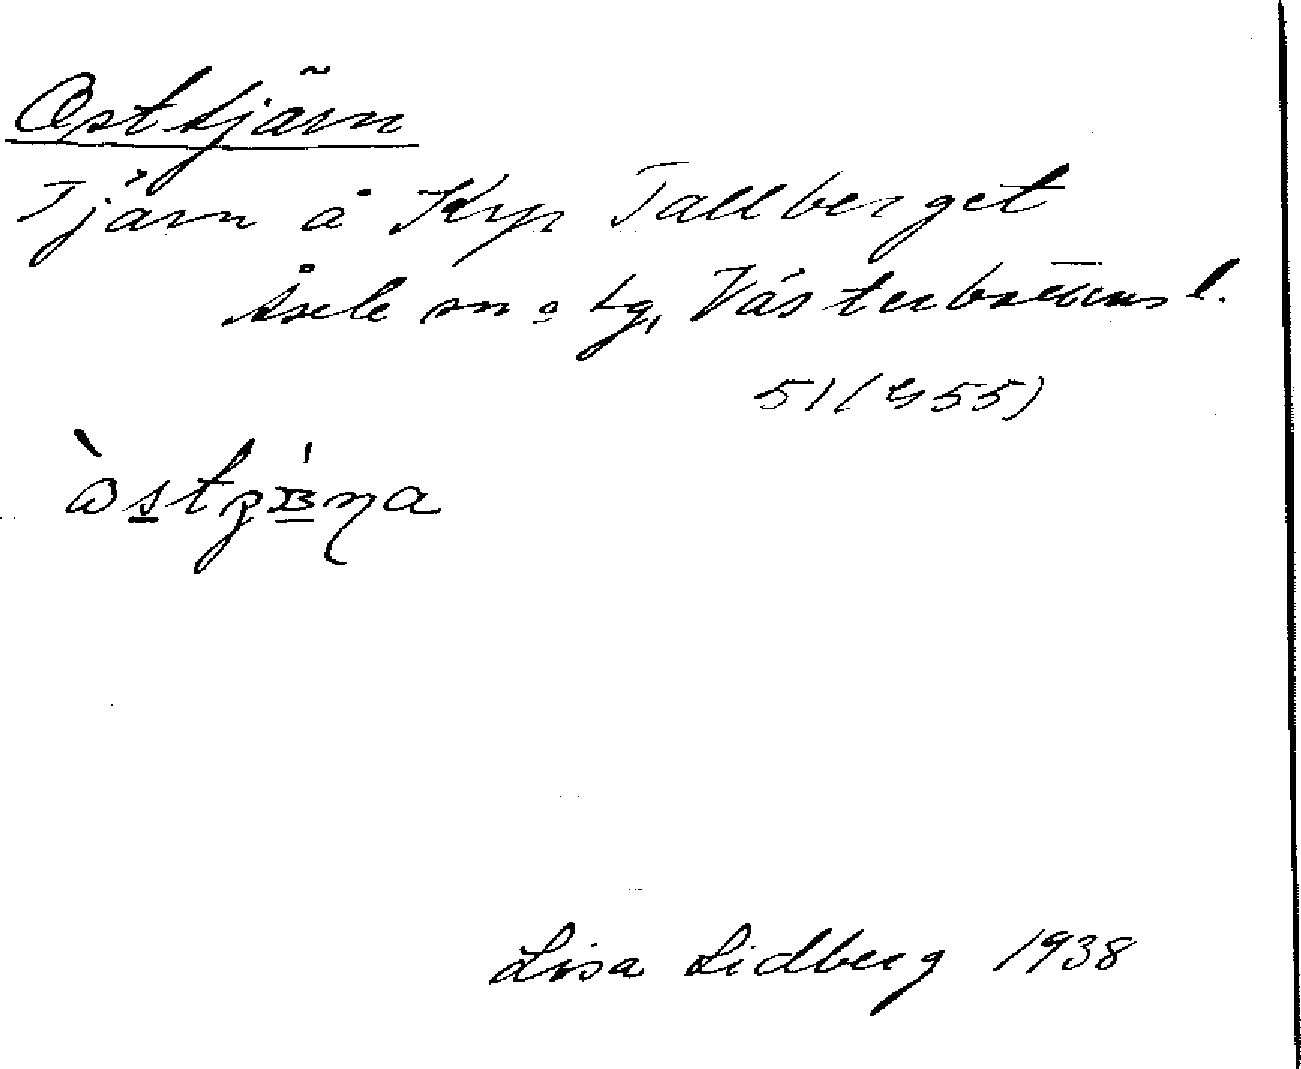 Osttjärn
Tjärn å Krp Tallberget
Åsele sn o lg, Västerbottens l.
51 (455)
Lisa Lidberg 1938